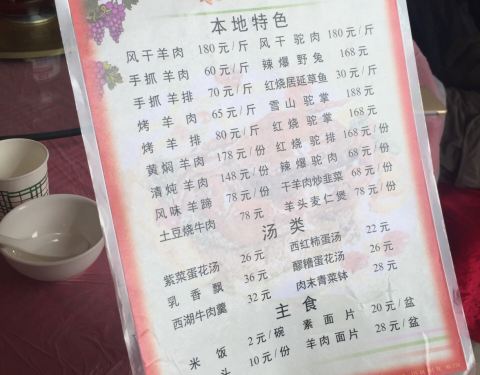 本地特色
风干羊肉 180元/斤 风干驼肉 180元/斤
手抓羊肉 60元/斤 辣爆野兔 168元
手抓羊排 70元/斤 红烧居延草鱼 30元/斤
烤羊肉 65元/斤 雪山驼掌 188元
烤羊排 80元/斤 红烧驼掌 168元
黄焖羊肉 178元/份 红烧驼排 168元/份
清炖羊肉 148元/份 辣爆驼肉 68元/份
风味羊蹄 78元/份 干羊肉炒韭菜 68元/份
土豆烧牛肉 78元 羊头麦仁煲 78元/份
汤类
紫菜蛋花汤 26元 西红柿蛋汤 22元
乳香飘 36元 醪糟蛋花汤 26元
西湖牛肉羹 32元 肉末青菜钵 28元
主食
米饭 2元/碗 素面片 20元/盆
头 10元/份 羊肉面片 28元/盆